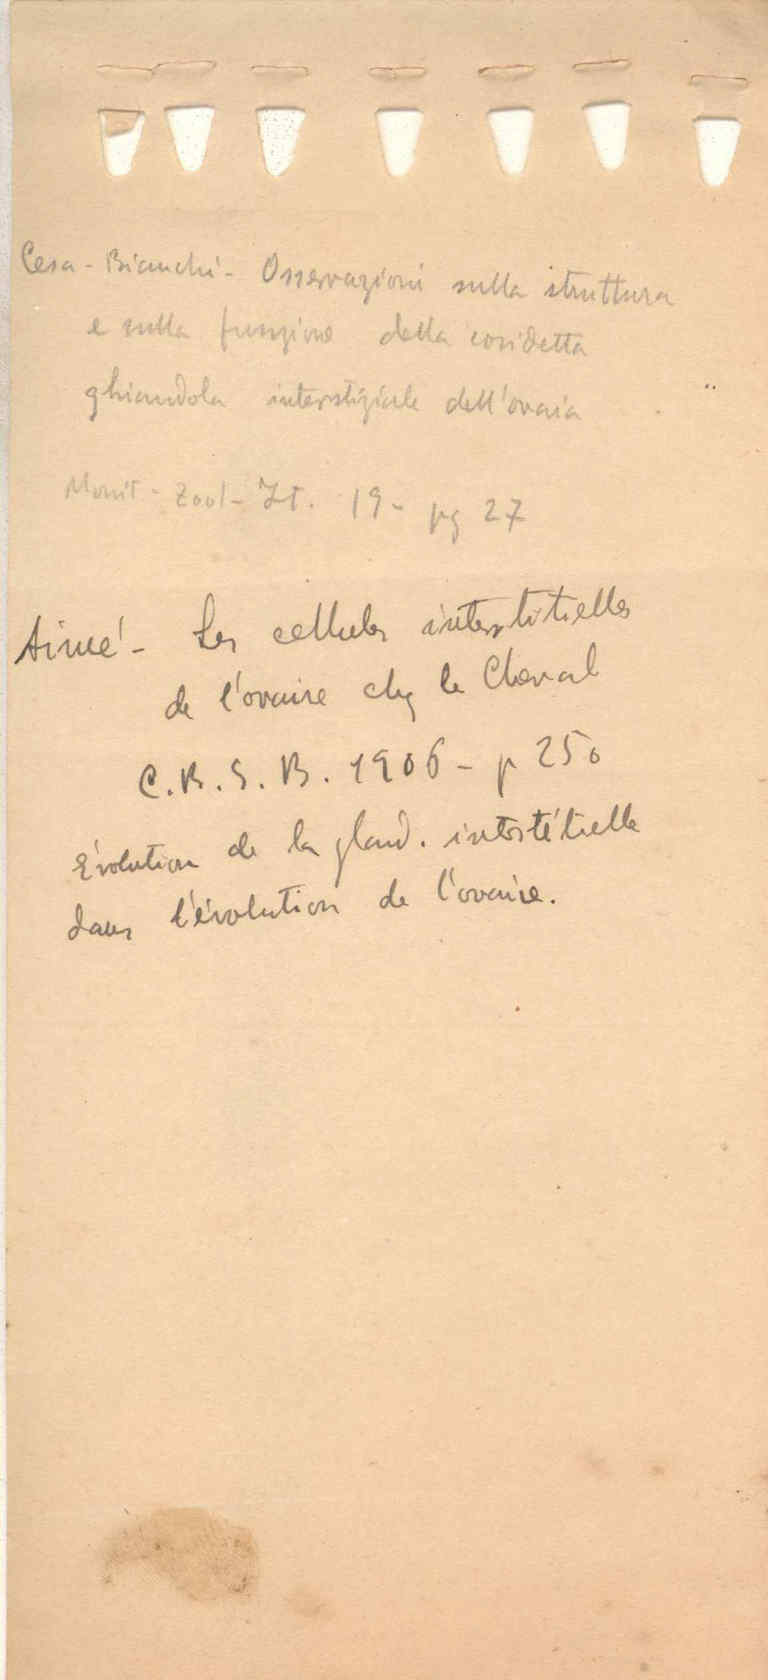 Cesa-Bianchi - Osservazioni sulla struttura
e sulla funzione della cosidetta
ghiandola interstiziale dell'ovaia
Monit - Zool - It. 19 - pg 27
Aimé - Les cellules interstitielles
de l'ovaire chez le Cheval
C.R.S.B. 1906 - p 250
Évolution de la gland. interstitielle
dans l'évolution de l'ovaire.